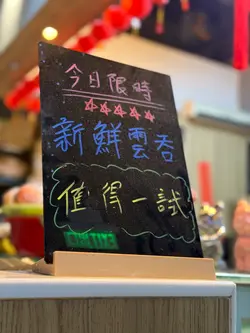 今日限時
☆☆☆☆☆
新鮮雲吞
值得一試